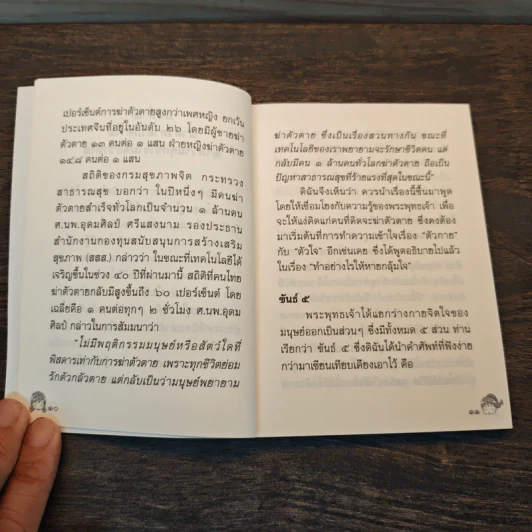 เปอร์เซ็นต์การฆ่าตัวตายสูงกว่าเพศหญิง ยกเว้น
ประเทศจีนที่อยู่ในอันดับ ๒๖ โดยมีผู้ชายฆ่า
ตัวตาย ๑๓ คนต่อ ๑ แสน ฝ่ายหญิงฆ่าตัวตาย
๑๔.๘ คนต่อ ๑ แสน
สถิติของกรมสุขภาพจิต กระทรวง
สาธารณสุข บอกว่า ในปีหนึ่งๆ มีคนฆ่า
ตัวตายสำเร็จทั่วโลกเป็นจำนวน ๑ ล้านคน
ศ.นพ.อุดมศิลป์ ศรีแสงนาม รองประธาน
สำนักงานกองทุนสนับสนุนการสร้างเสริม
สุขภาพ (สสส.) กล่าวว่า ในขณะที่เทคโนโลยีได้
เจริญขึ้นในช่วง ๔๐ ปีที่ผ่านมานี้ สถิติที่คนไทย
ฆ่าตัวตายกลับมีสูงขึ้นถึง ๖๐ เปอร์เซ็นต์ โดย
เฉลี่ยคือ ๑ คนต่อทุกๆ ๒ ชั่วโมง ศ.นพ.อุดม
ศิลป์ กล่าวในการสัมมนาว่า
"ไม่มีพฤติกรรมมนุษย์หรือสัตว์ใดที่
พิสดารเท่ากับการฆ่าตัวตาย เพราะทุกชีวิตย่อม
รักตัวกลัวตาย แต่กลับเป็นว่ามนุษย์พยายาม
๑๐
ฆ่าตัวตาย ซึ่งเป็นเรื่องสวนทางกัน ขณะที่
เทคโนโลยีของเราพยายามจะรักษาชีวิตคน แต่
กลับมีคน ๑ ล้านคนทั่วโลกฆ่าตัวตาย ถือเป็น
ปัญหาสาธารณสุขที่ร้ายแรงที่สุดในขณะนี้"
ดิฉันจึงเห็นว่า ควรนำเรื่องนี้ขึ้นมาพูด
โดยให้เชื่อมโยงกับความรู้ของพระพุทธเจ้า เพื่อ
จะให้แง่คิดแก่คนที่คิดจะฆ่าตัวตาย ซึ่งคงต้อง
มาเริ่มต้นที่การทำความเข้าใจเรื่อง "ตัวกาย"
กับ "ตัวใจ" อีกเช่นเคย ซึ่งได้พูดอธิบายไปแล้ว
ในเรื่อง "ทำอย่างไรให้หายกลุ้มใจ"
ขันธ์ ๕
พระพุทธเจ้าได้แยกร่างกายจิตใจของ
มนุษย์ออกเป็นส่วนๆ ซึ่งมีทั้งหมด ๕ ส่วน ท่าน
เรียกว่า ขันธ์ ๕ ซึ่งดิฉันได้นำคำศัพท์ที่ฟังง่าย
กว่ามาเขียนเทียบเคียงเอาไว้ คือ
๑๑